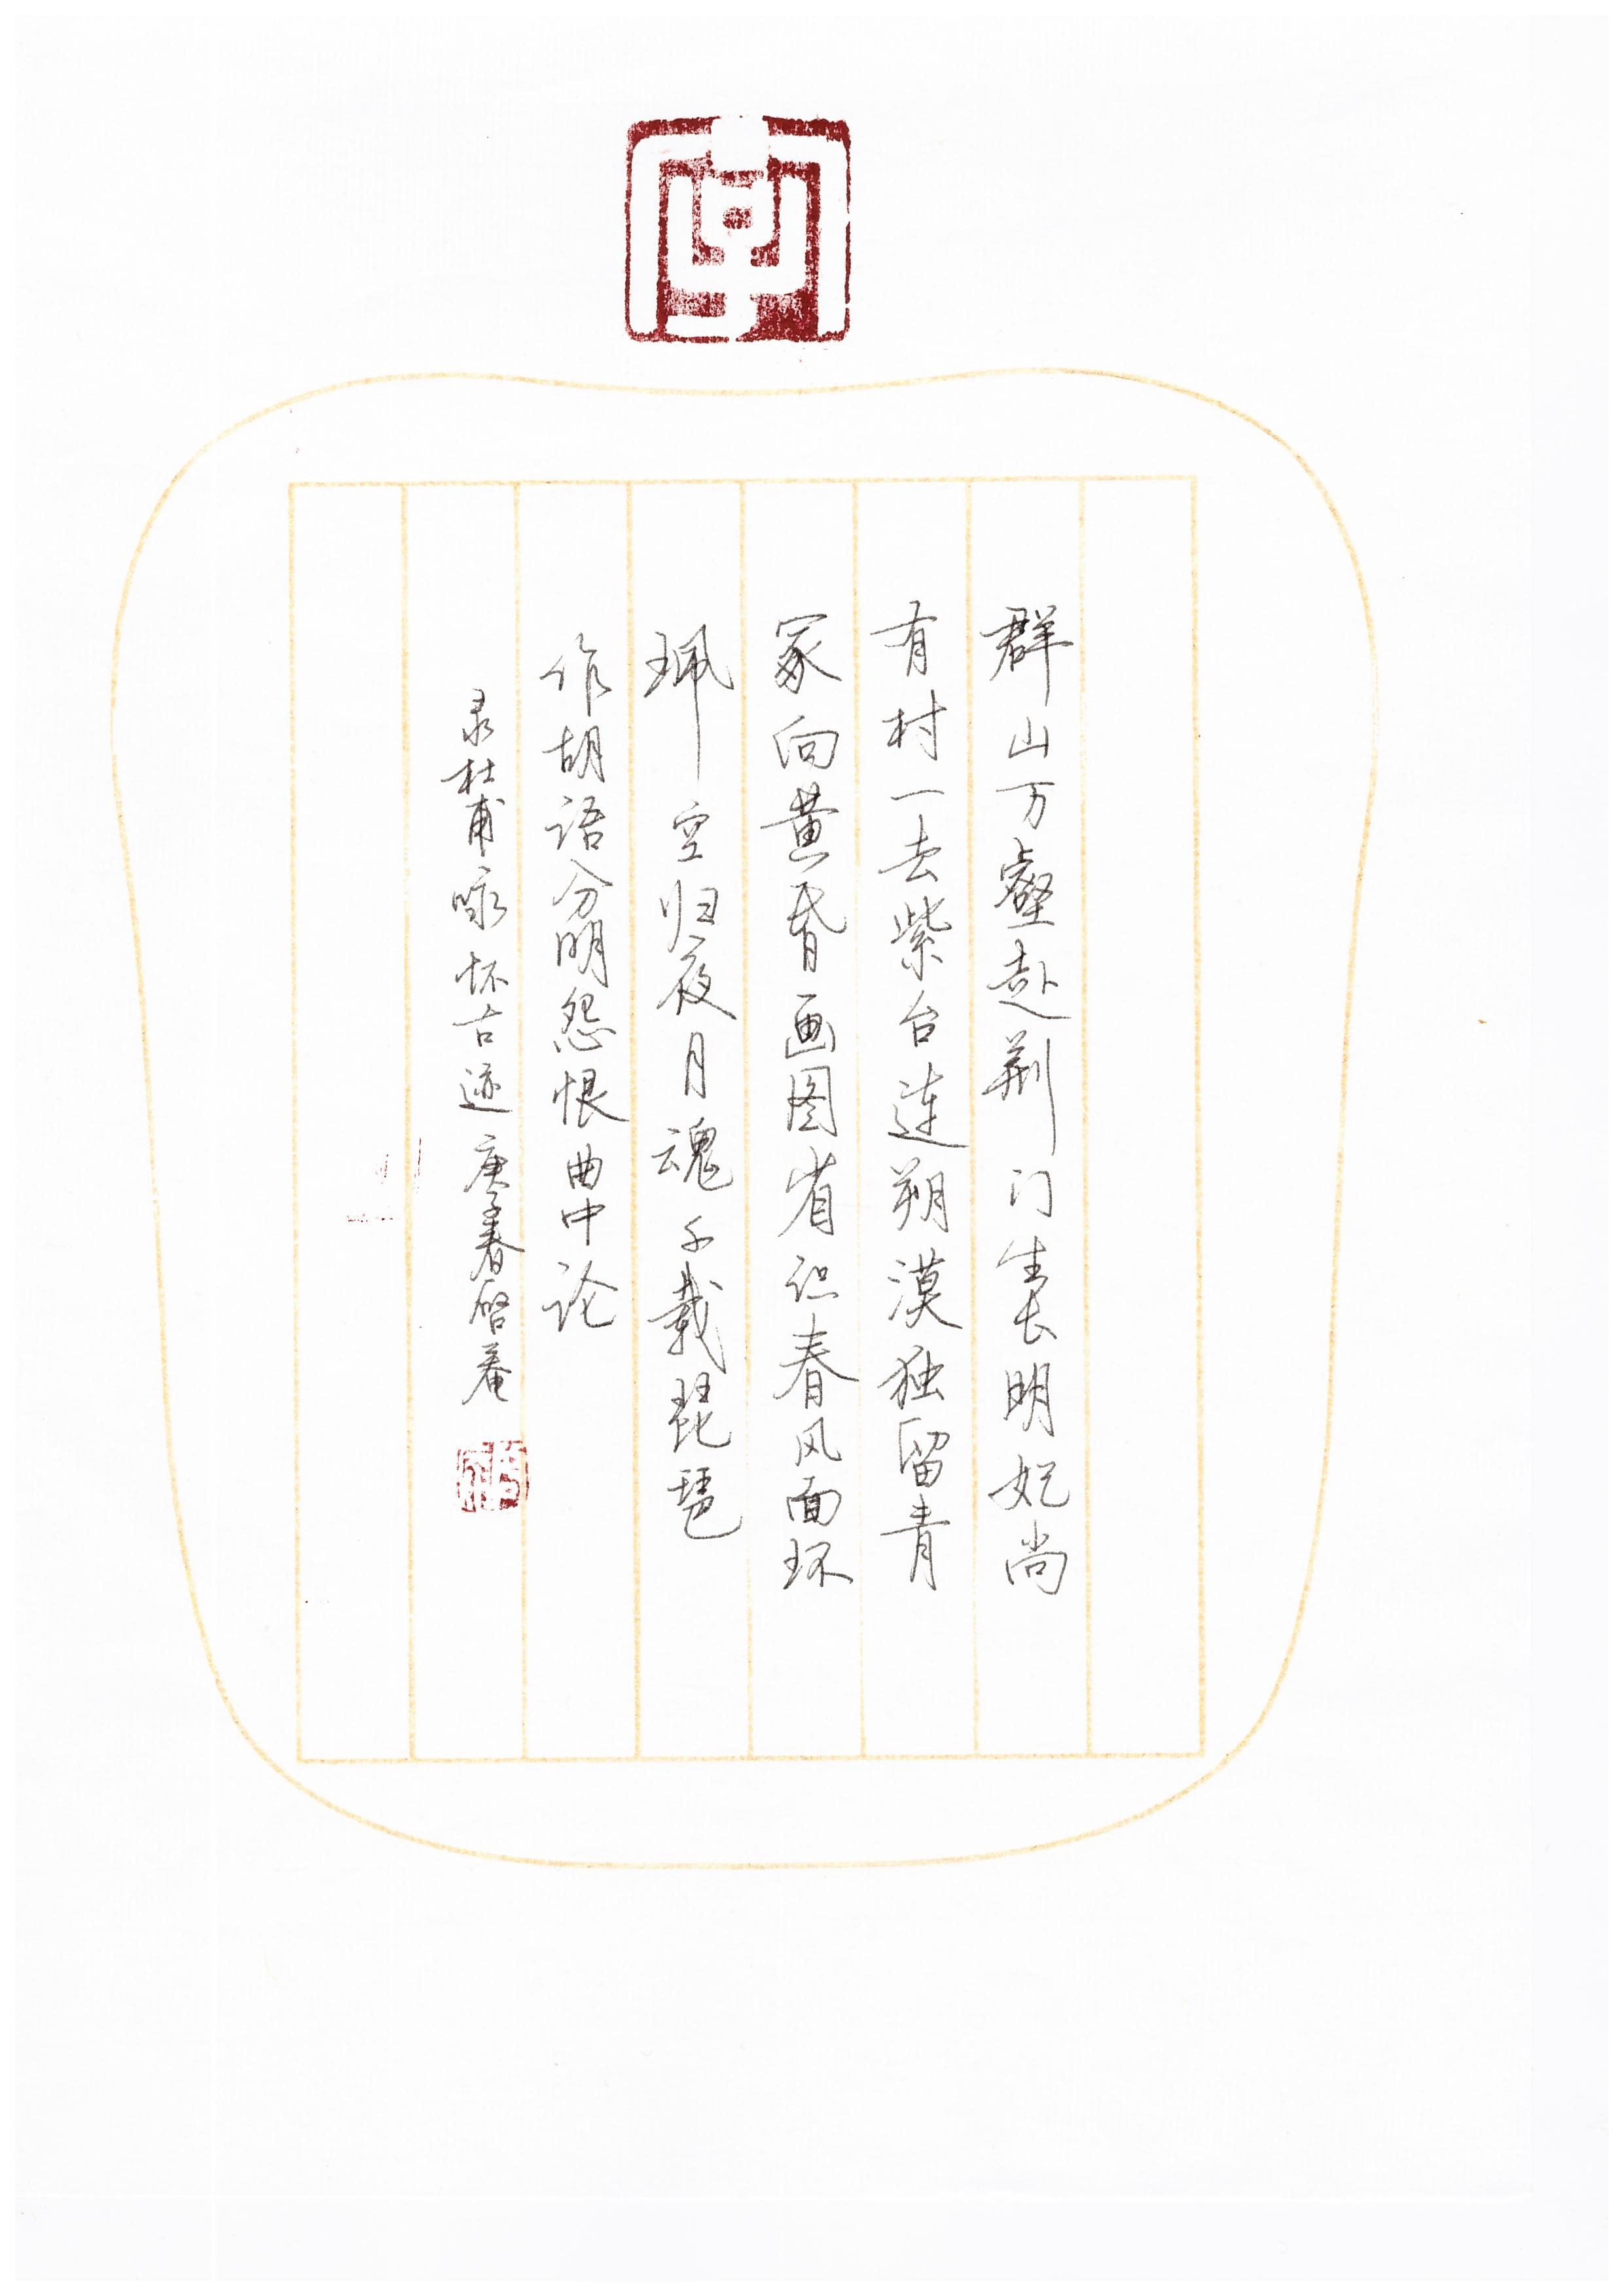 群山万壑赴荆门生长明妃尚
有村一去紫台连朔漠独留青
冢向黄昏画图省识春风面环
珮空归夜月魂千载琵琶
作胡语分明怨恨曲中论
录杜甫咏怀古迹庚子春啓菴